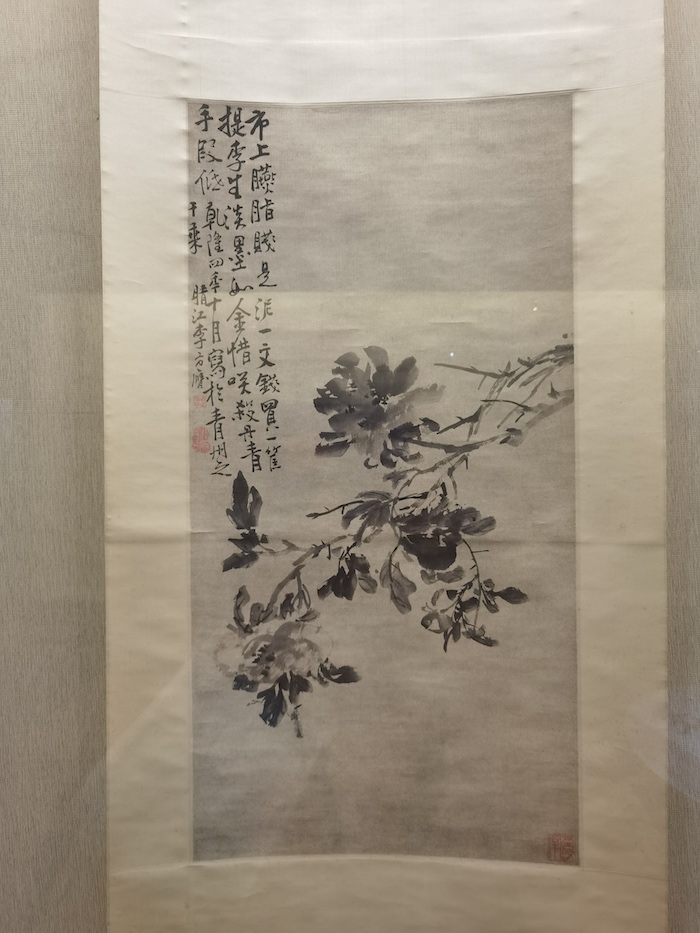 市上臙脂賤是泥一文錢買一筐
提李生淡墨如金惜咲殺丹青
手段低乾隆四年十月寫於青州之
千乘晴江李方膺